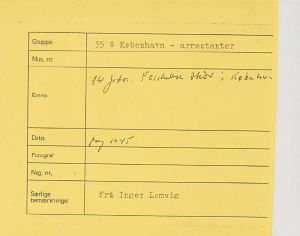 Gruppe 35 0 København - arrestanter
Mus. nr.
14 fotos. Forskellige steder i København
Emne
Dato maj 1945
Fotograf
Neg. nr.
Særlige
bemærkninger frá Inger Lemvig